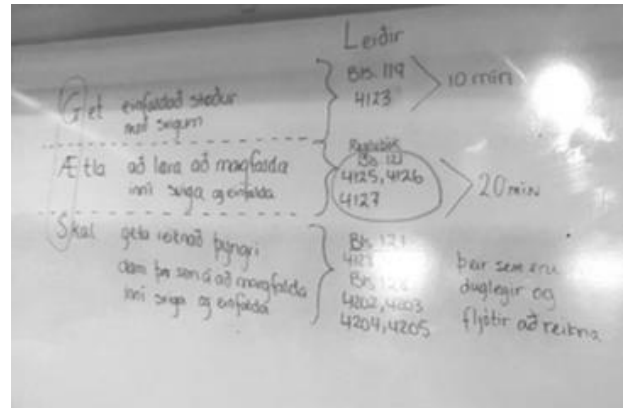 Leiðir
Get einfaldað stæður
með svigum
Bls. 119
4123
10 mín
Ætla að læra að margfalda
inní sviga og einfalda
Bls 121
4125, 4126
4127
20 min
Skal geta reiknað þyngri
dæmi þar sem á að margfalda
inní sviga og einfalda
Bls 121
4202, 4203
4204, 4205
þeir sem eru
duglegir og
fljótir að reikna